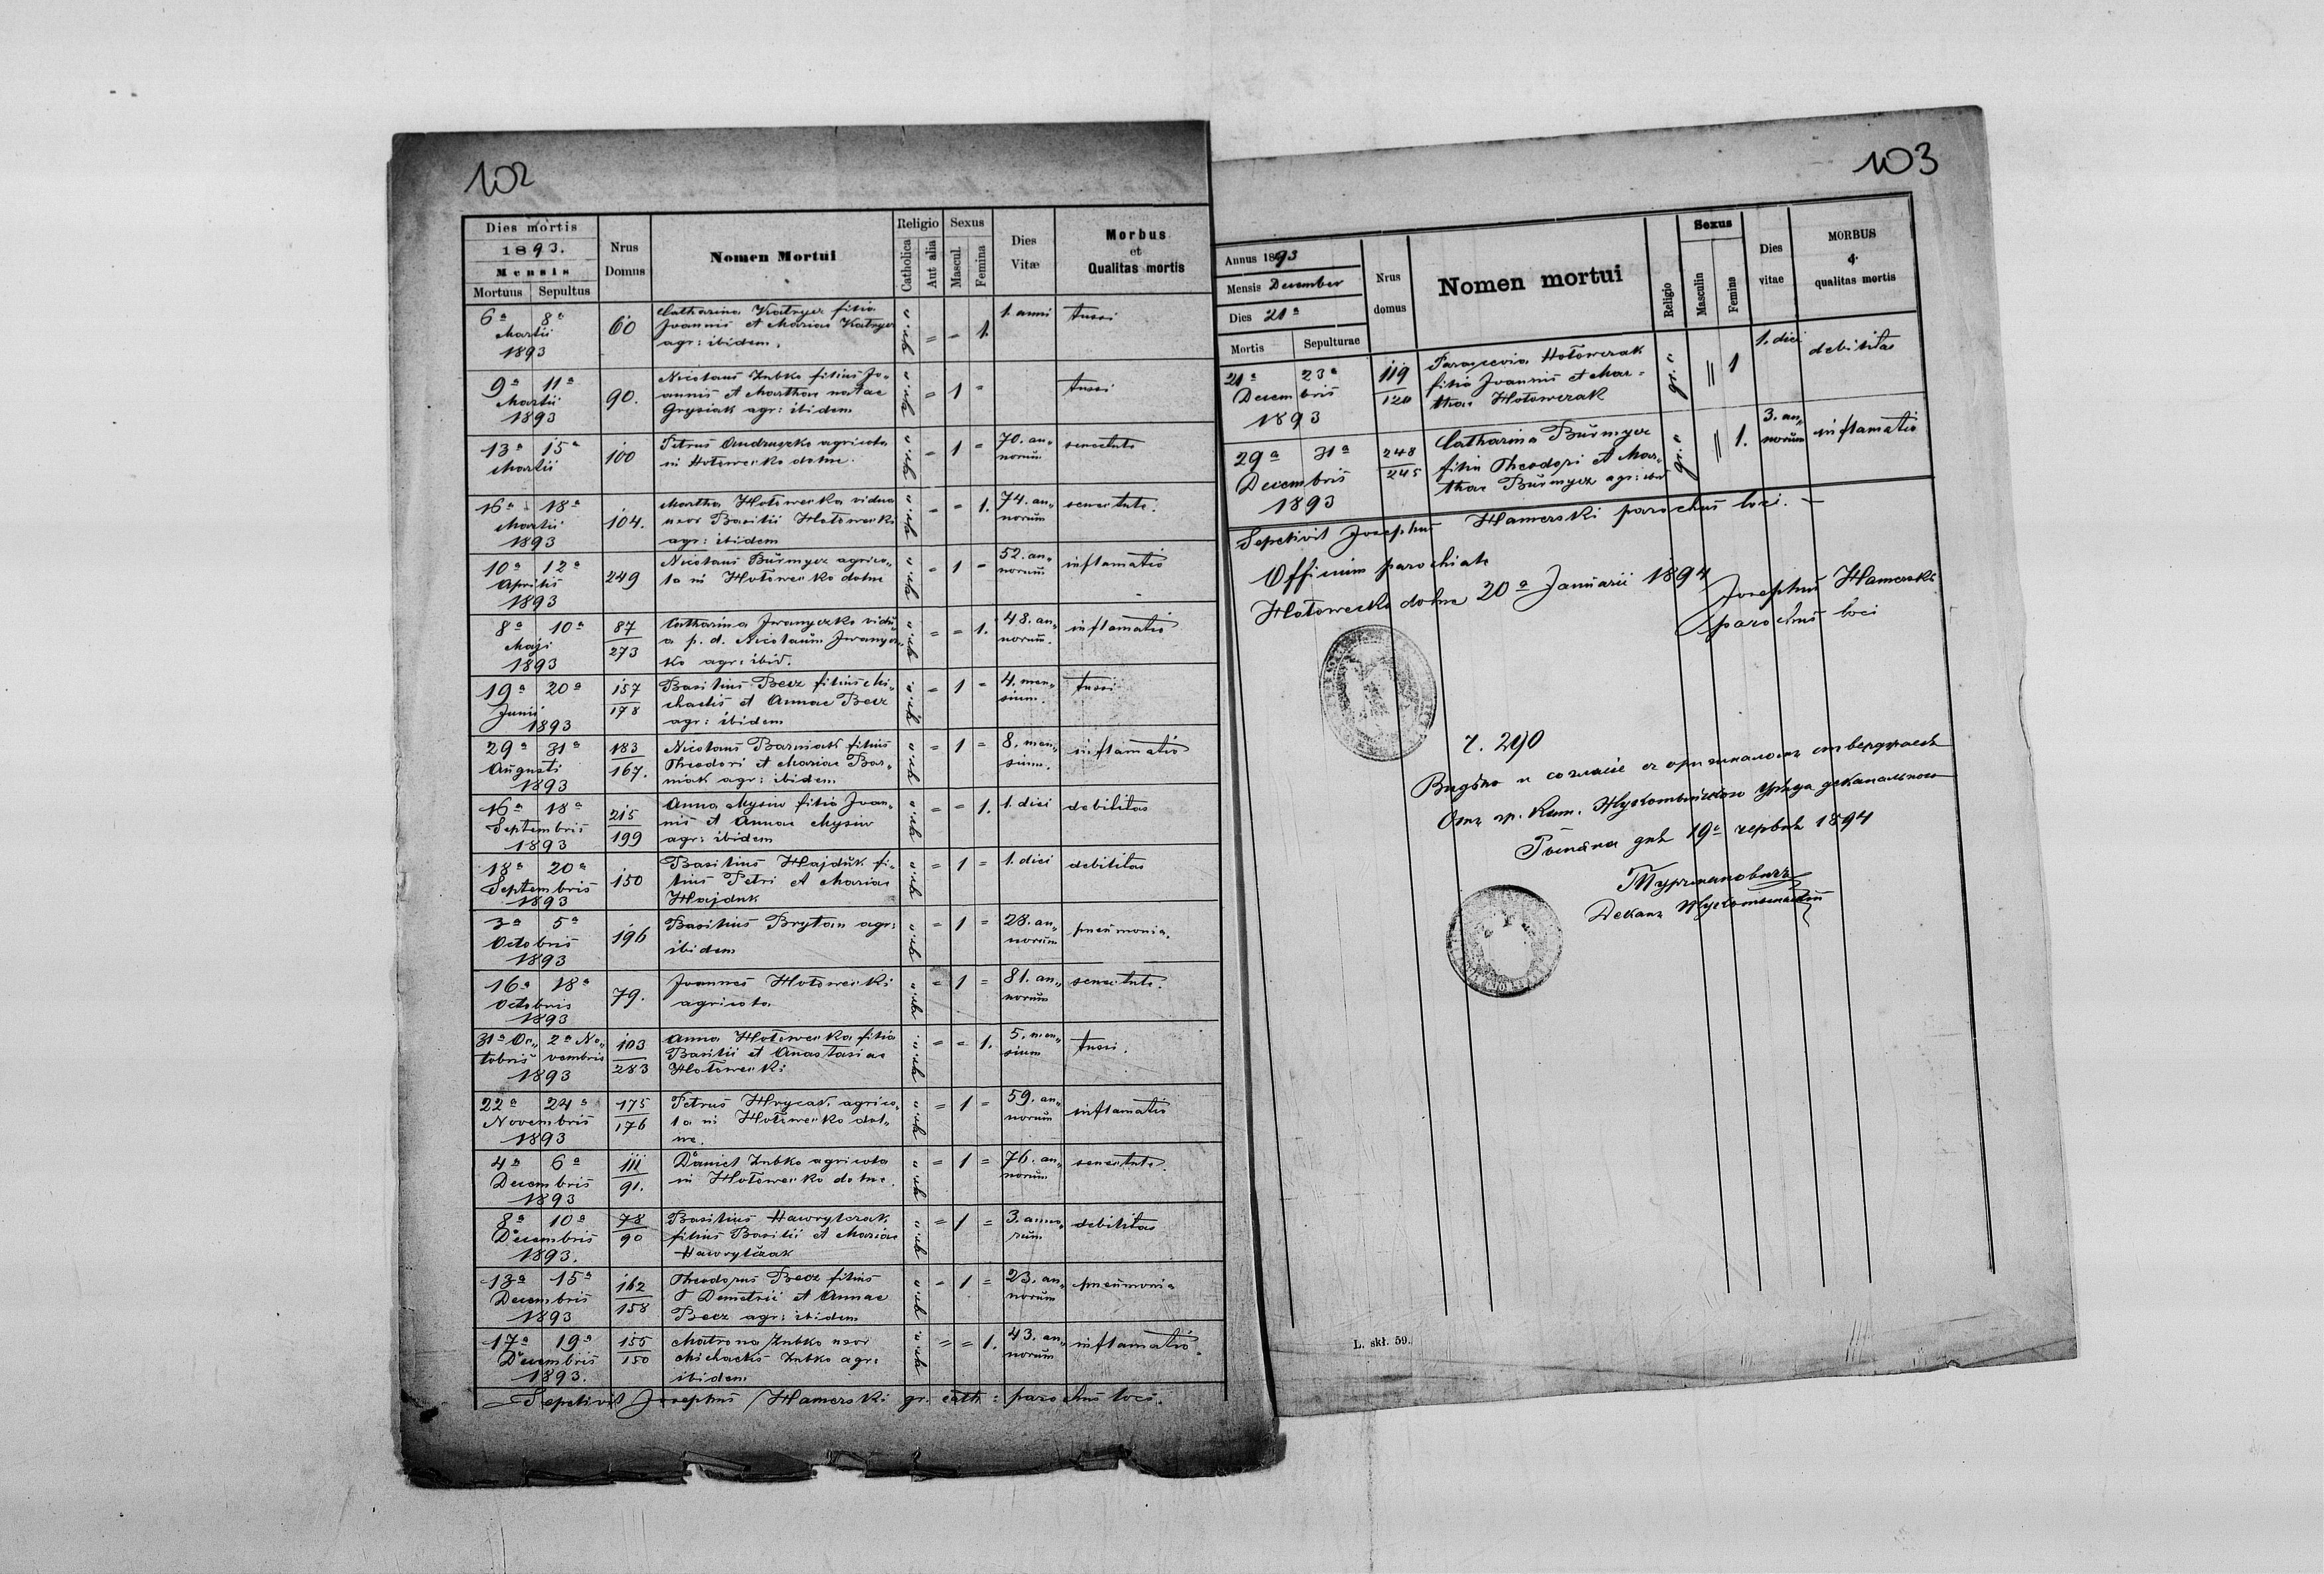 102
Dies mortis
1893.
Mensis
Mortuus Sepultus
Nrus
Domus
Nomen Mortui
Religio
Catholica
Aut alia
Sexus
Mascul.
Femina
Dies
Vitæ
Morbus
et
Qualitas mortis
6ª 8ª
Martii
1893
60
Catharina Katryez filia
Joannis et Mariae Katryez
agr: ibidem.
1.
1. anni
tussi
9ª 11ª
Martii
1893
90.
Nicolaus Zubko filius Jo-
annis et Marthae natae
Grysiak agr: ibidem
1
tussi
13ª 15ª
Martii
100
Petrus Andruszko agricola
in Hołowecko dolne.
1
70. an„
norum
senectute
16ª 18ª
Martii
1893
104.
Martha Hołowecka vidua
uxor Basilii Hołowecki
agr: ibidem
1.
74. an„
norum
senectute.
10ª 12ª
Aprilis
1893
249
Nicolaus Burmycz agrico„
la in Hołowecko dolne
1
52. an„
norum
inflamatio
8ª 10ª
Maji
1893
87
273
Catharina Iwanyczko vidu
a p. d. Nicolaum Iwanycz„
ko agr: ibid.
1.
48. an„
norum.
inflamatio
19ª 20ª
Junii
1893
157
178
Basilius Becz filius Mi„
chaelis et Annae Becz
agr: ibidem
1
4. men„
sium.
tussi
29ª 31ª
Augusti
1893
183
167.
Nicolaus Barniak filius
Theodori et Mariae Bar„
niak agr: ibidem
1
8. men„
sium.
inflamatio
16ª 18ª
Septembris
1893
215
199
Anna Mysiw filia Joan„
nis et Annae Mysiw
agr: ibidem
1.
1. diei
debilitas
18ª 20ª
Septembris
1893
150
Basilius Hajduk fi„
lius Petri et Mariae
Hajduk
1
1. diei
debilitas
3ª 5ª
Octobris
1893
196
Basilius Brytan agr:
ibidem
1
28. an„
norum
pneumonia.
16ª 18ª
Octobris
1893
79.
Joannes Hołowecki
agricola
1
81. an„
norum
senectute.
31ª Oc„ 2ª No„
tobris vembris
1893
103
283
Anna Hołowecka filia
Basilii et Anastasiae
Hołowecki
1.
5. men„
sium
tussi.
22ª 24ª
Novembris
1893
175
176
Petrus Hrycak agrico„
la in Hołowecko dol„
ne.
1
59. an„
norum
inflamatio
4ª 6ª
Decembris
1893
111
91.
Daniel Zubko agricola
in Hołowecko dolne.
1
76. an„
norum
senectute.
8ª 10ª
Decembris
1893.
78
90
Basilius Hawrylczak
filius Basilii et Mariae
Hawrylczak
1
3. anno„
rum
debilitas
13ª 15ª
Decembris
1893
162
158
Theodorus Becz filius
Demetrii et Annae
Becz agr: ibidem
1
23. an„
norum
pneumonia
17ª 19ª
Decembris
1893.
155
150
Matrona Zubko uxor
Michaelis Zubko agr:
ibidem
1.
43. an„
norum
inflamatio.
Sepelivit Josephus Hamerski gr. cath: parochus loci.
103
Annus 1893
Mensis December
Dies 21ª
Mortis Sepulturae
Nrus
domus
Nomen mortui
Religio
Sexus
Masculin
Femina
Dies
vitae
MORBUS
qualitas mortis
21ª 23ª
Decembris
1893
119
120
Parascevia Hołowczak
filia Joannis et Mar-
thae Hołowczak
1
1. diei
debilitas
29ª 31ª
Decembris
1893
248
245
Catharina Burmycz
filia Theodori et Mar„
thae Burmycz agr: ibid
1.
3. an„
norum
inflamatio
Sepelivit Josephus Hamerski parochus loci.
Officium parochiale
Hołowecko dolne 20ª Januarii 1894
Josephus Hamerski
parochus loci
Ч. 290
согласіе съ оригиналомъ ствердраесъ
Отъ гр. Кат.
дня 19ª червня 1894
Деканъ
L. skł. 59.